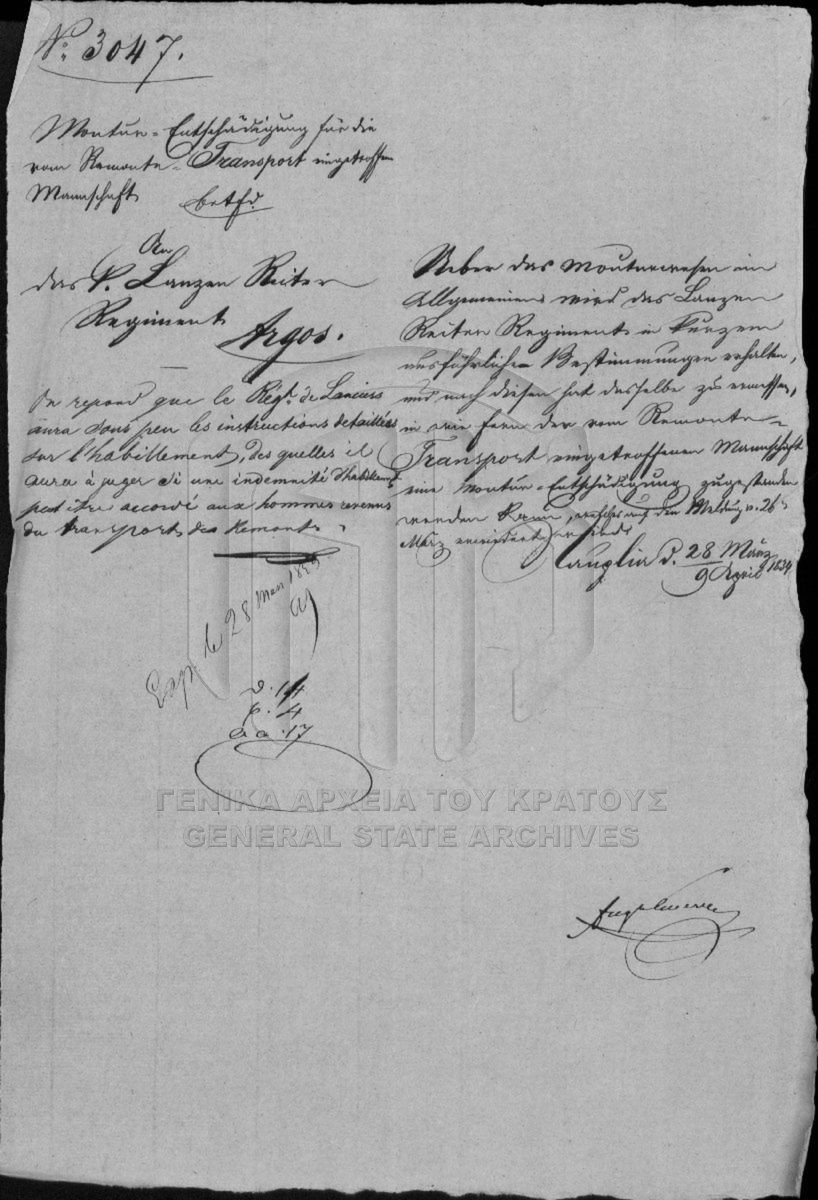 Nº 3047.
Montur-Entschädigung für die
vom Remonte-Transport eingetroffene
Mannschaft betfd.
An
das k. Lanzen Reiter
Regiment
Argos.
On repond que le Régt. de Lanciers
aura sous peu les instructions detaillées
sur l'habillement, des quelles il
aura à juger si une indemnité d'habillemt
peut être accordé aux hommes revenus
du transport des Remonts.
Exp. le 28 Mars
v. 14
p. 4
a a . 17
Ueber das Monturwesen im
Allgemeinen wird das Lanzen
Reiter Regiment in Kurzem
ausführliche Bestimmungen erhalten,
und nach diesen hat dasselbe zu ermessen,
in wie fern der vom Remonte-
Transport eingetroffenen Mannschaft
eine Montur-Entschädigung zugestanden
werden kann, auf die Meldung v. 26
März erwiedert wird.
Nauplia d. 28 März
9 April 1834
ΓΕΝΙΚΑ ΑΡΧΕΙΑ ΤΟΥ ΚΡΑΤΟΥΣ
GENERAL STATE ARCHIVES